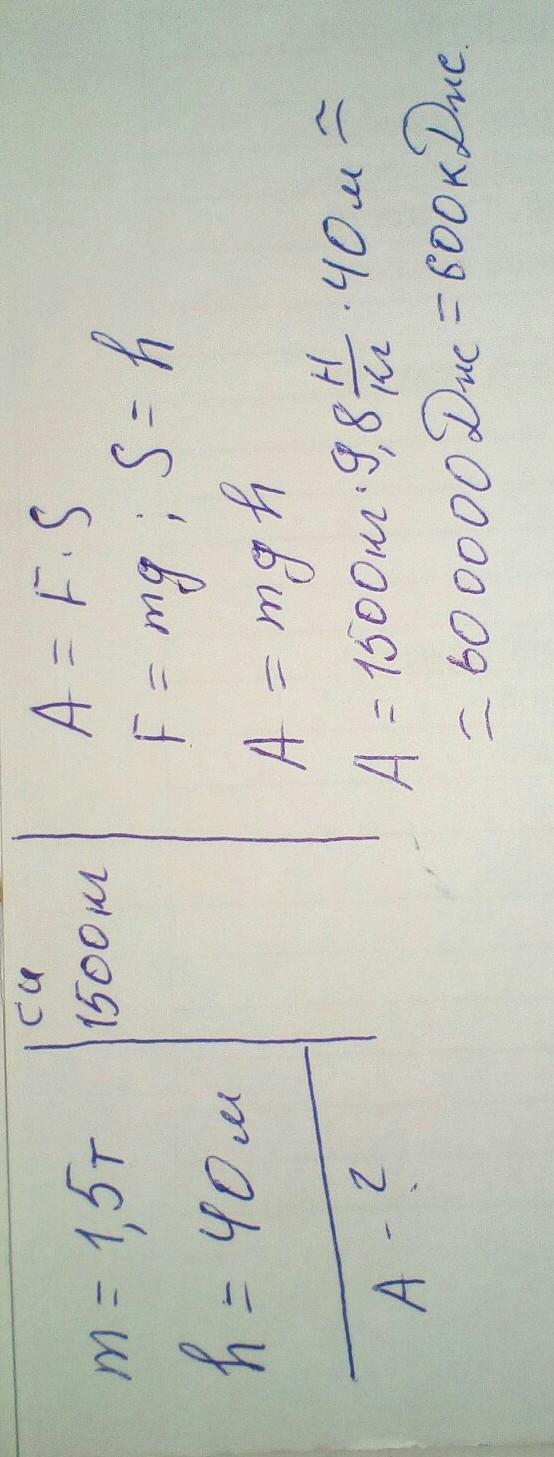 m = 1,5т
h = 40м
A - ?
си
1500кг
A = F · S
F = mg ; S = h
A = mgh
A = 1500кг · 9,8 Н/кг · 40м ≈
≈ 600000Дж = 600кДж.